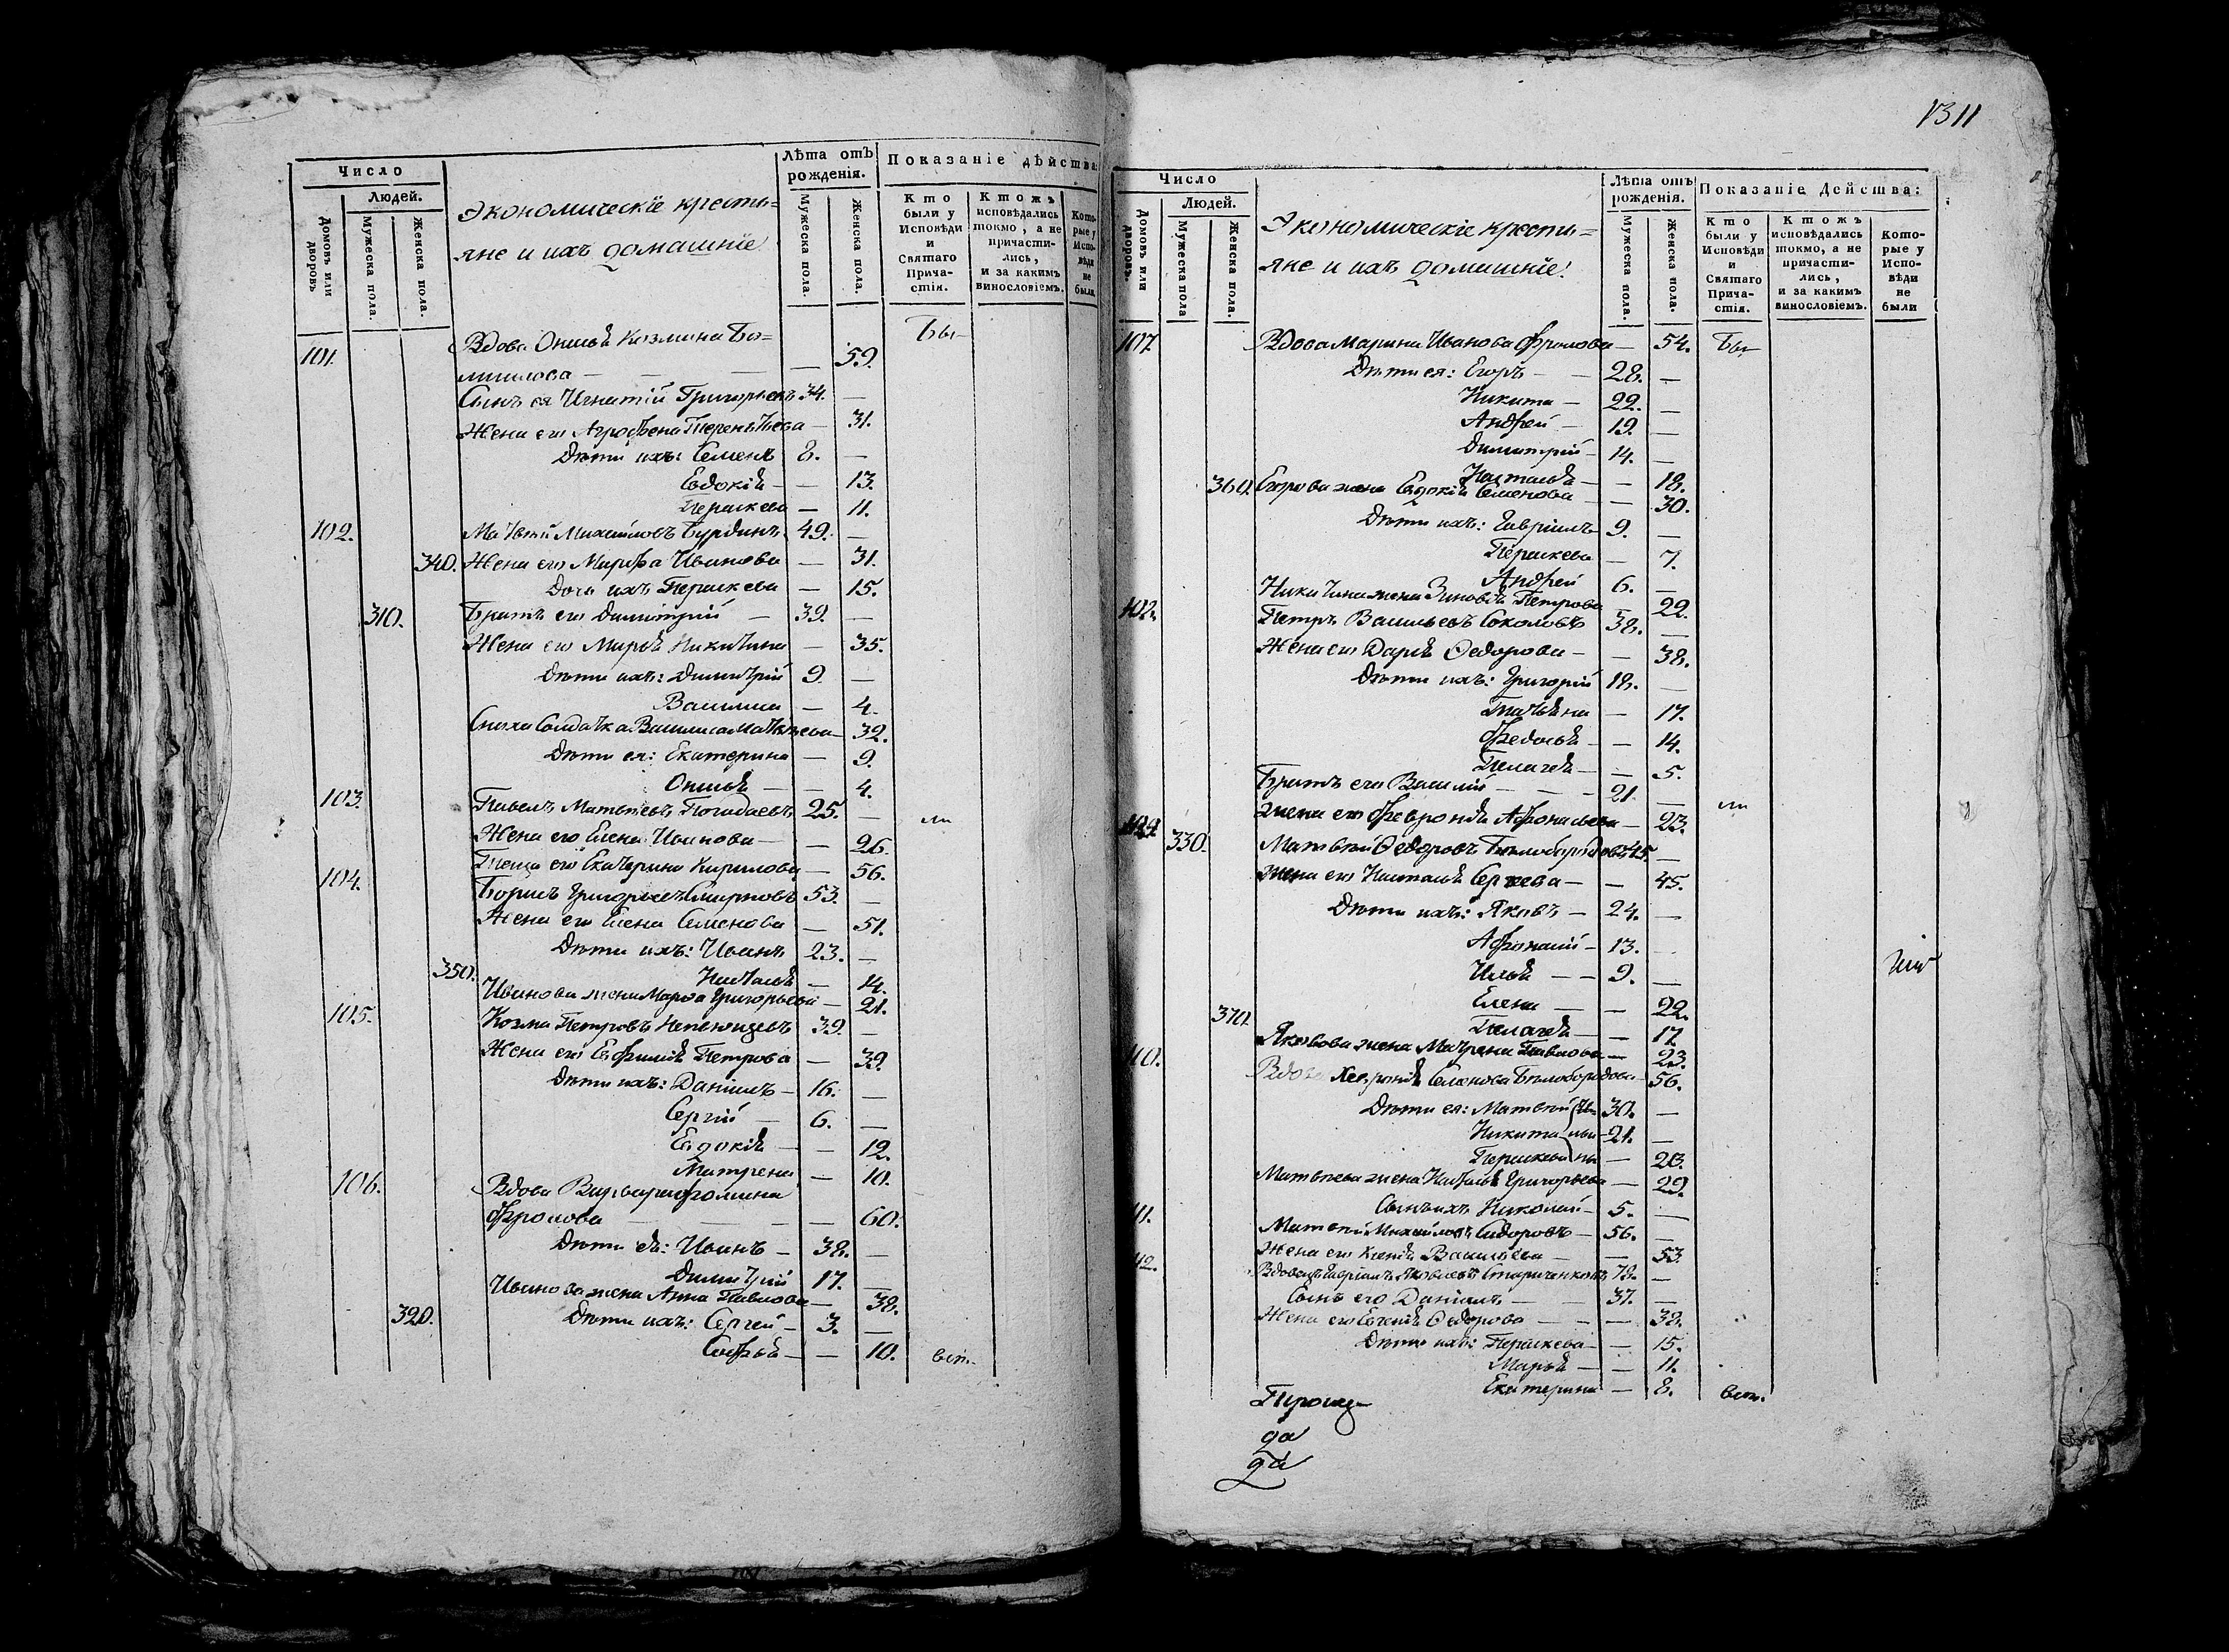 1311
Число
Людей.
Домовъ или дворовъ
Мужеска пола.
Женска пола.
Экономическїе крестья=
яне и ихъ домашнїе
Лѣта отъ рожденія.
Мужеска пола.
Женска пола.
Показаніе дѣйства:
Кто были у Исповѣди и Святаго Причастія.
Ктожъ исповѣдались токмо, а не причастились, и за какимъ винословіемъ.
Которые у Исповѣди не были.
101. Вдова Козмина 59. Бы
Сынъ ея Игнатій Григорьевъ 34. —
Жена его Агрофена Терентьева — 31.
Дѣти ихъ: Семенъ 8. —
Евдокія — 13.
Параскева — 11.
102. Матвей Михайловъ Бурдинъ 49. —
340. Жена его Марфа Иванова — 31.
Дочь ихъ Параскева — 15.
310. Братъ его Димитрій — 39. —
Жена его Марья Никитина — 35.
Дѣти ихъ: Димитрій 9. —
Василиса — 4.
Сноха Солдатка Василиса Матвѣева — 32.
Дѣти ея: Екатерина — 9.
4.
103. Павелъ Матвѣевъ Погадаевъ 25. — ли
Жена его Елена Иванова — 26.
Теща его Екатерина Кирилова — 56.
104. Борисъ Григорьевъ Смирновъ 53. —
Жена его Елена Семенова — 51.
Дѣти ихъ: Иванъ 23. —
350. Наталья — 14.
Иванова жена Марфа Григорьева — 21.
105. Козма Петровъ 39. —
Жена его Ефимья Петрова — 39.
Дѣти ихъ: Даніилъ — 16. —
Сергій — 6. —
Евдокія — 12.
Матрена — 10.
106. Вдова Варвара Фомина
Фролова — 60.
Дѣти ея: Иванъ — 38. —
Димитрій 17. —
Иванова жена Анна Павлова — 38.
320. Дѣти ихъ: Сергей — 3. —
Софья — — 10. всп.
Число
Людей.
Домовъ или дворовъ.
Мужеска пола
Женска пола.
Экономическїе крестья=
яне и ихъ домашнїе.
Лѣта отъ рожденія.
Мужеска пола.
Женска пола.
Показаніе Действа:
Кто были у Исповѣди и Святаго Причастія.
Ктожъ исповѣдались токмо, а не причастились, и за какимъ винословіемъ.
Которые у Исповѣди не были
107 Вдова Марина Иванова Фролова — 54. Бы
Дѣти ея: Егоръ — 28. —
Никита — 22. —
Андрей — 19. —
Димитрій — 14. —
Наталья — — 18.
360. Егорова жена Евдокія Семенова — 30.
Дѣти ихъ: Гавріилъ 9. —
Параскева — 7.
Андрей 6. —
Никитина жена Зиновья Петрова — 22.
Петръ Васильевъ Соколовъ 38. —
Жена его Дарья Ѳедорова — — 38.
Дѣти ихъ: Григорій 18. —
Татьяна — 17.
Федосья — — 14.
Пелагея — — 5.
Братъ его Василій — 21. — ли
Жена его Февронья Афонасьева — 23.
330. Матвей Ѳедоровъ Бѣлобородовъ 45. —
Жена его Наталья Сергеева — — 45.
Дѣти ихъ: Яковъ — 24. —
Афонасій — 13. —
Илья — — 9. —
Елена — — 22.
370. Пелагея — — 17
Яковова жена Матрена Павлова — 23.
110. Вдова Семенова Бѣлобородова — 56.
Дѣти ея: Матвей 30. —
Никита 21. —
Параскева — 20.
Матвѣева жена Наталья Григорьева — 29.
Сынъ ихъ Николай — 5. —
Матвей Михайловъ Сидоровъ — 56. —
Жена его Ксенія Васильева — — 53.
Вдовецъ Гавріилъ Яковлевъ 78. —
Сынъ его Даніилъ — 37. —
Жена его Ѳедорова — — 38.
Дѣти ихъ: Параскева — — 15.
Марья — — 11.
Екатерина — 8. всп.